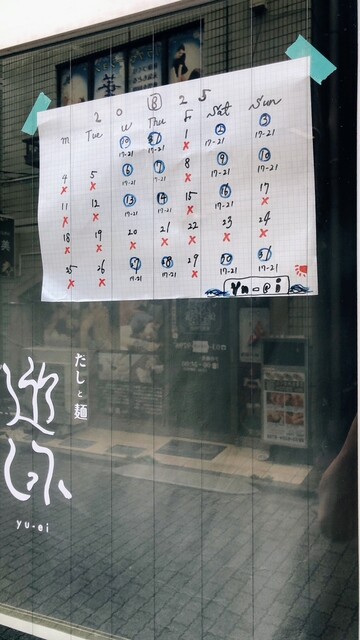 2 0 8 2 5
M Tue W Thu F Sat Sun
30 31 1 2 3
17-21 17-21 × 17-21 17-21
4 5 6 7 8 9 10
× × 17-21 17-21 × 17-21 17-21
11 12 13 14 15 16 17
× × 17-21 17-21 × 17-21 ×
18 19 20 21 22 23 24
× × × × × × ×
25 26 27 28 29 30 31
× × 17-21 17-21 × 17-21 17-21
だしと麺
yu-ei